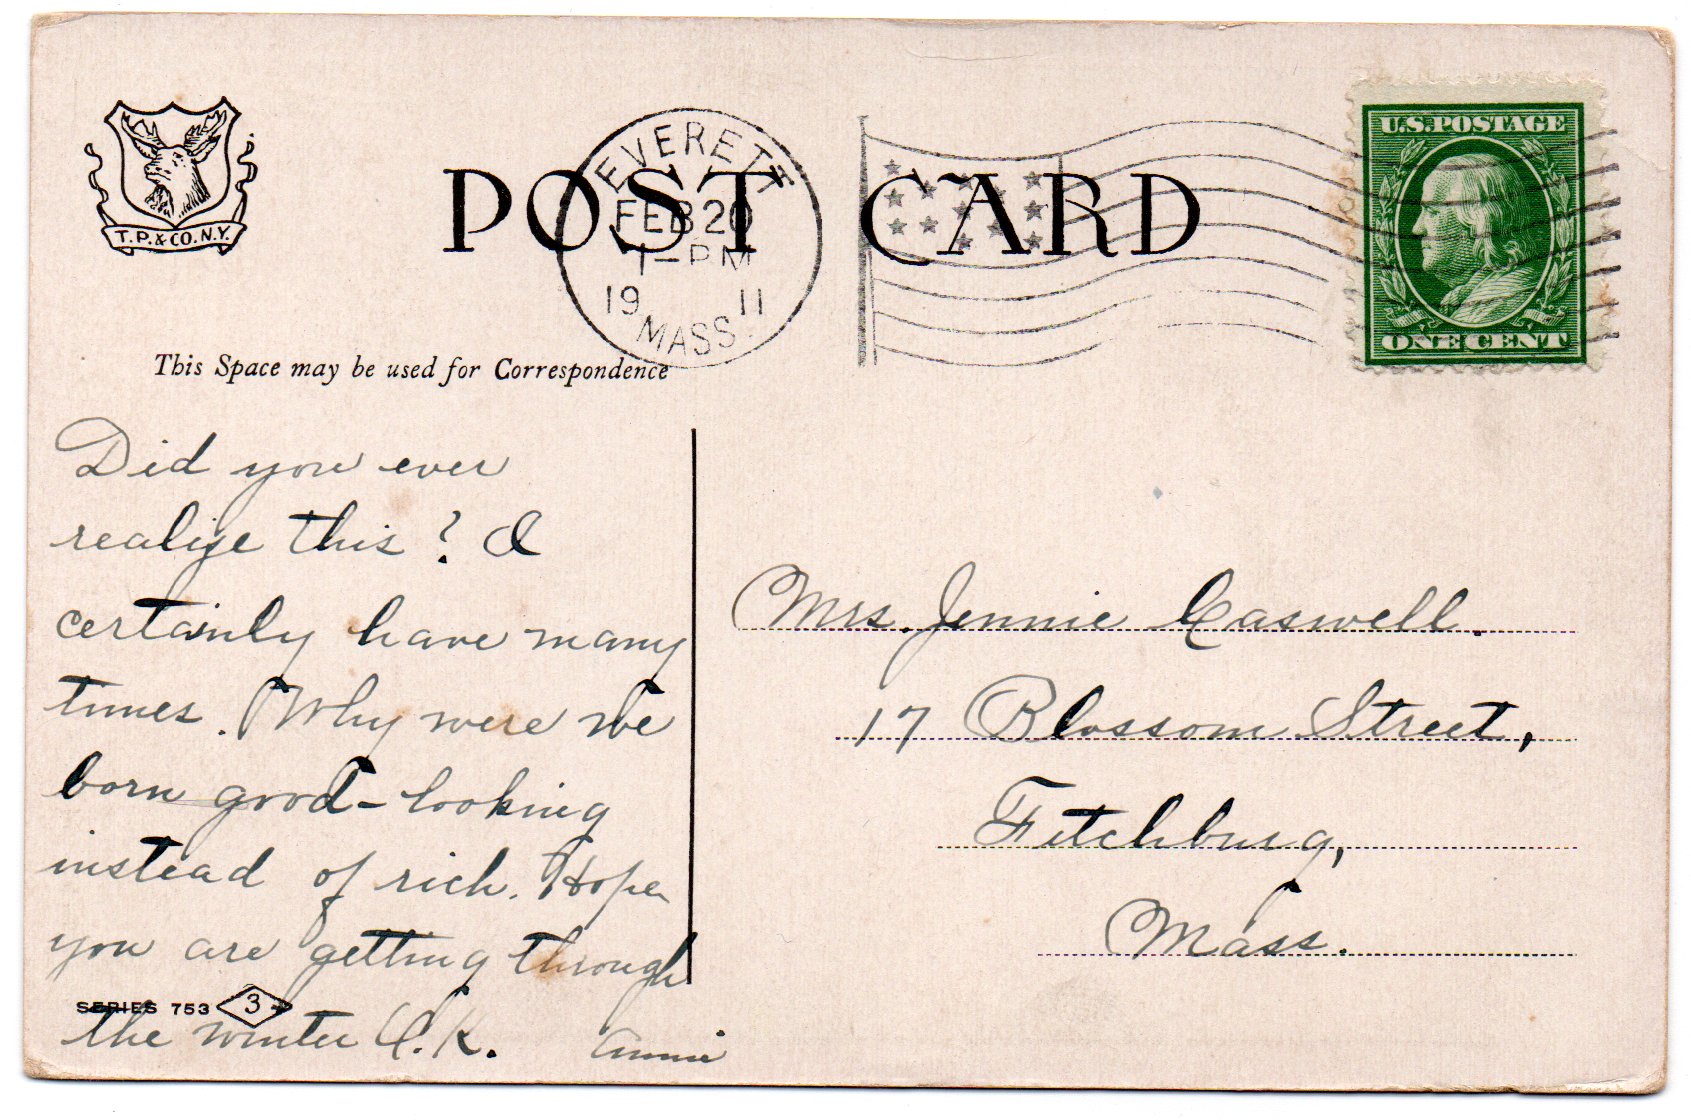 T.P.& CO. N.Y.
POST CARD
EVERETT
FEB 20
1-PM
19 11
MASS.
U.S.POSTAGE
ONE CENT
This Space may be used for Correspondence
Did you ever
realize this? I
certainly have many
times. Why were we
born good-looking
instead of rich. Hope
you are getting through
the winter O.K. Annie
SERIES 753 3
Mrs. Jennie Caswell.
17 Blossom Street,
Fitchburg,
Mass.